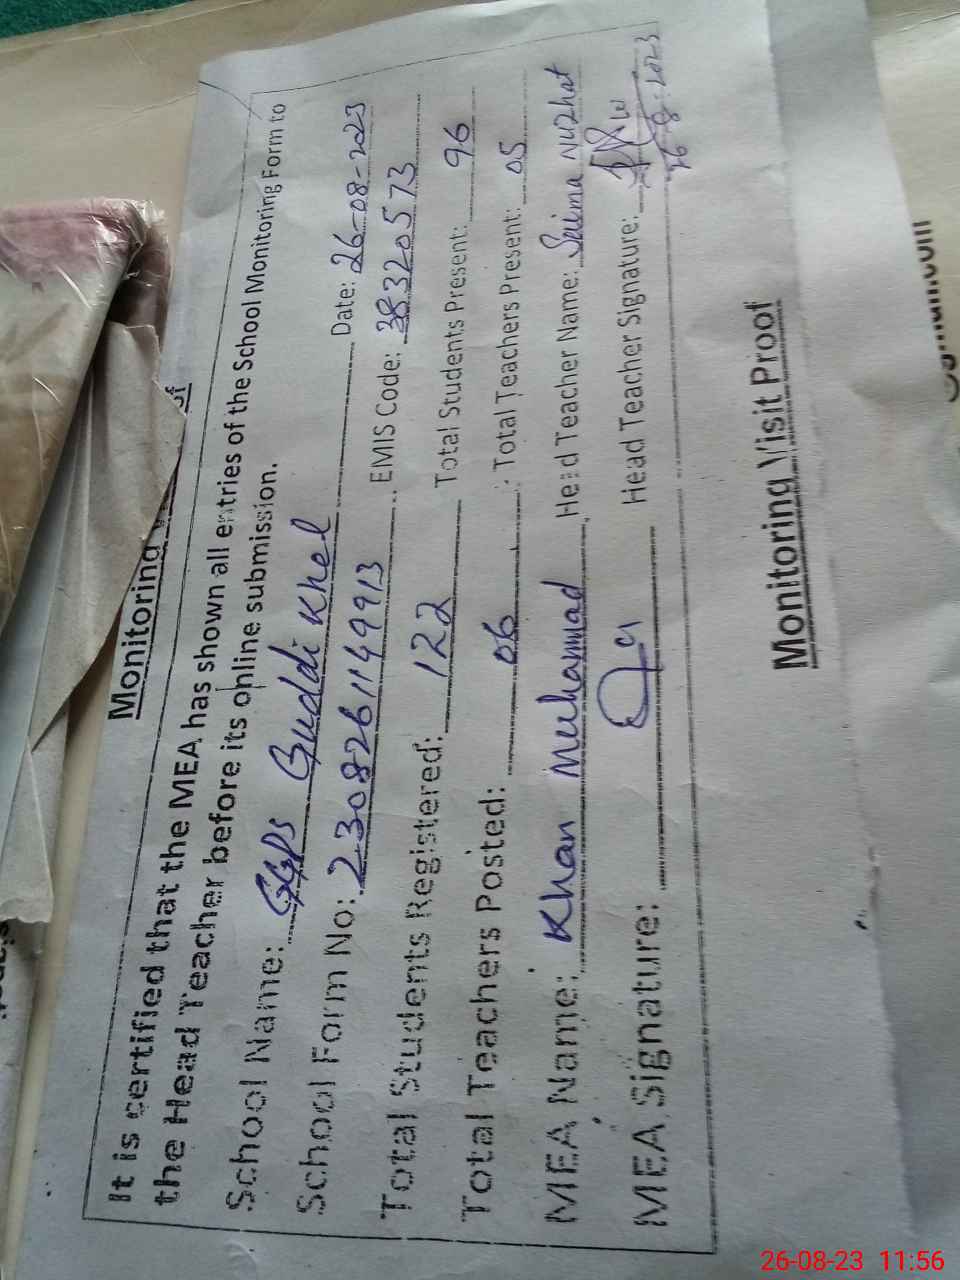 Monitoring
It is certified that the MEA has shown all entries of the School Monitoring Form to
the Head Teacher before its online submission.
School Name: GGPS Guddi Khel Date: 26-08-2023
School Form No: 2308261149913 EMIS Code: 38320573
Total Students Registered: 122 Total Students Present: 96
Total Teachers Posted: 06 Total Teachers Present: 05
MEA Name: Khan Muhammad Head Teacher Name: Saima Nuzhat
MEA Signature: Head Teacher Signature:
26-8-2023
Monitoring Visit Proof
26-08-23 11:56